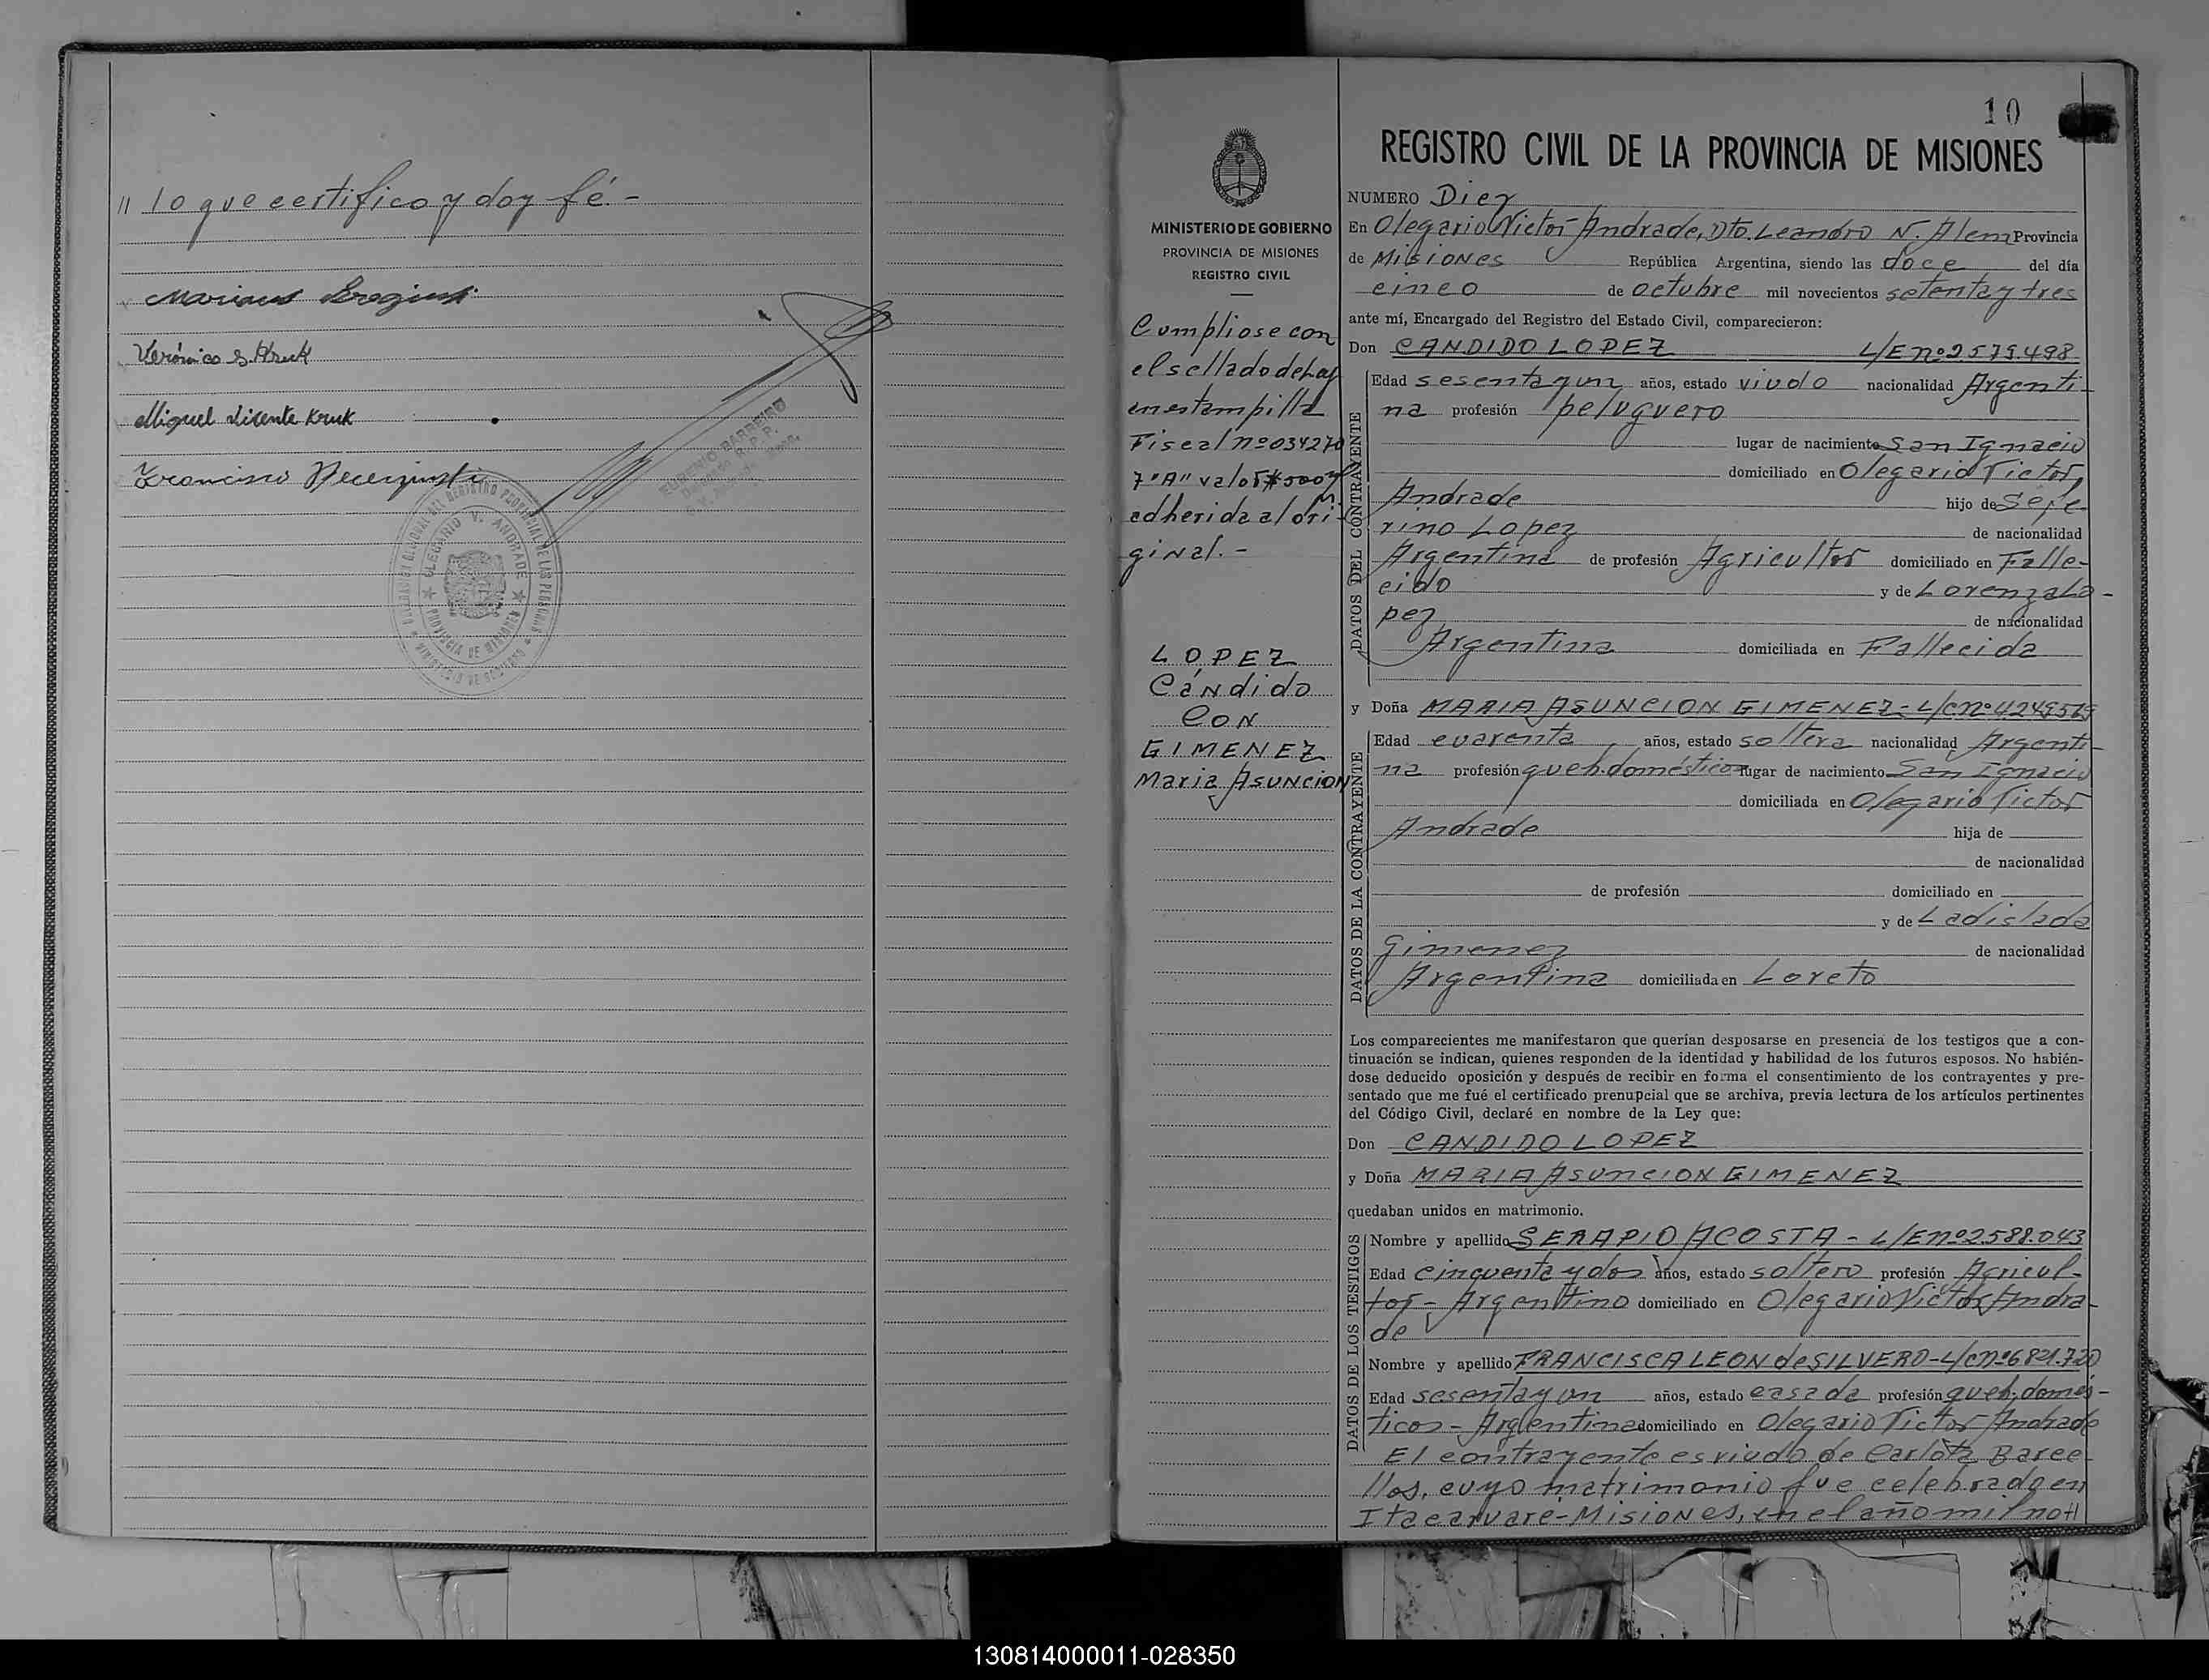 " lo que certifico y doy fé. -
Verónica S. Kruk
Miguel Vicente Kruk
Francisco
EUGENIO BARREIRO
OLEGARIO V. ANDRADE
PROVINCIA DE MISIONES
10
REGISTRO CIVIL DE LA PROVINCIA DE MISIONES
MINISTERIO DE GOBIERNO
PROVINCIA DE MISIONES
REGISTRO CIVIL
Cumpliose con
el sellado de Ley
en estampilla
Fiscal nº 034270
7 "A" valor $ 500
adherida al ori-
ginal. -
LOPEZ
Cándido
CON
GIMENEZ
Maria Asuncion
NUMERO Diez
En Olegario Victor Andrade, Dto. Leandro N. Alem Provincia
de Misiones República Argentina, siendo las doce del día
cinco de octubre mil novecientos setenta y tres
ante mí, Encargado del Registro del Estado Civil, comparecieron:
Don CANDIDO LOPEZ L/E nº 2.579.498
DATOS DEL CONTRAYENTE
Edad sesenta y un años, estado viudo nacionalidad Argenti-
na profesión peluquero
lugar de nacimiento San Ignacio
domiciliado en Olegario Victor
Andrade hijo de Sefe
rino Lopez de nacionalidad
Argentina de profesión Agricultor domiciliado en Falle-
cido y de Lorenza Lo-
pez de nacionalidad
Argentina domiciliada en Fallecida
y Doña MARIA ASUNCION GIMENEZ - L/C nº 4249569
DATOS DE LA CONTRAYENTE
Edad cuarenta años, estado soltera nacionalidad Argenti-
na profesión queh. domésticos lugar de nacimiento San Ignacio
domiciliada en Olegario Victor
Andrade hija de
de nacionalidad
de profesión domiciliado en
y de Ladislada
Gimenez de nacionalidad
Argentina domiciliada en Loreto
Los comparecientes me manifestaron que querían desposarse en presencia de los testigos que a con-
tinuación se indican, quienes responden de la identidad y habilidad de los futuros esposos. No habién-
dose deducido oposición y después de recibir en forma el consentimiento de los contrayentes y pre-
sentado que me fué el certificado prenupcial que se archiva, previa lectura de los artículos pertinentes
del Código Civil, declaré en nombre de la Ley que:
Don CANDIDO LOPEZ
y Doña MARIA ASUNCION GIMENEZ
quedaban unidos en matrimonio.
DATOS DE LOS TESTIGOS
Nombre y apellido SERAPIO ACOSTA - L/E nº 2.588.043
Edad cincuenta y dos años, estado soltero profesión Agricul-
tor - Argentino domiciliado en Olegario Victor Andra-
de
Nombre y apellido FRANCISCA LEON de SILVERO - L/C nº 6821.720
Edad sesenta y un años, estado casada profesión queh. domés-
ticos - Argentina domiciliado en Olegario Victor Andrade
El contrayente es viudo de Carlota Barce
llos, cuyo matrimonio fue celebrado en
Itacaruaré - Misiones, en el año mil no//
130814000011-028350